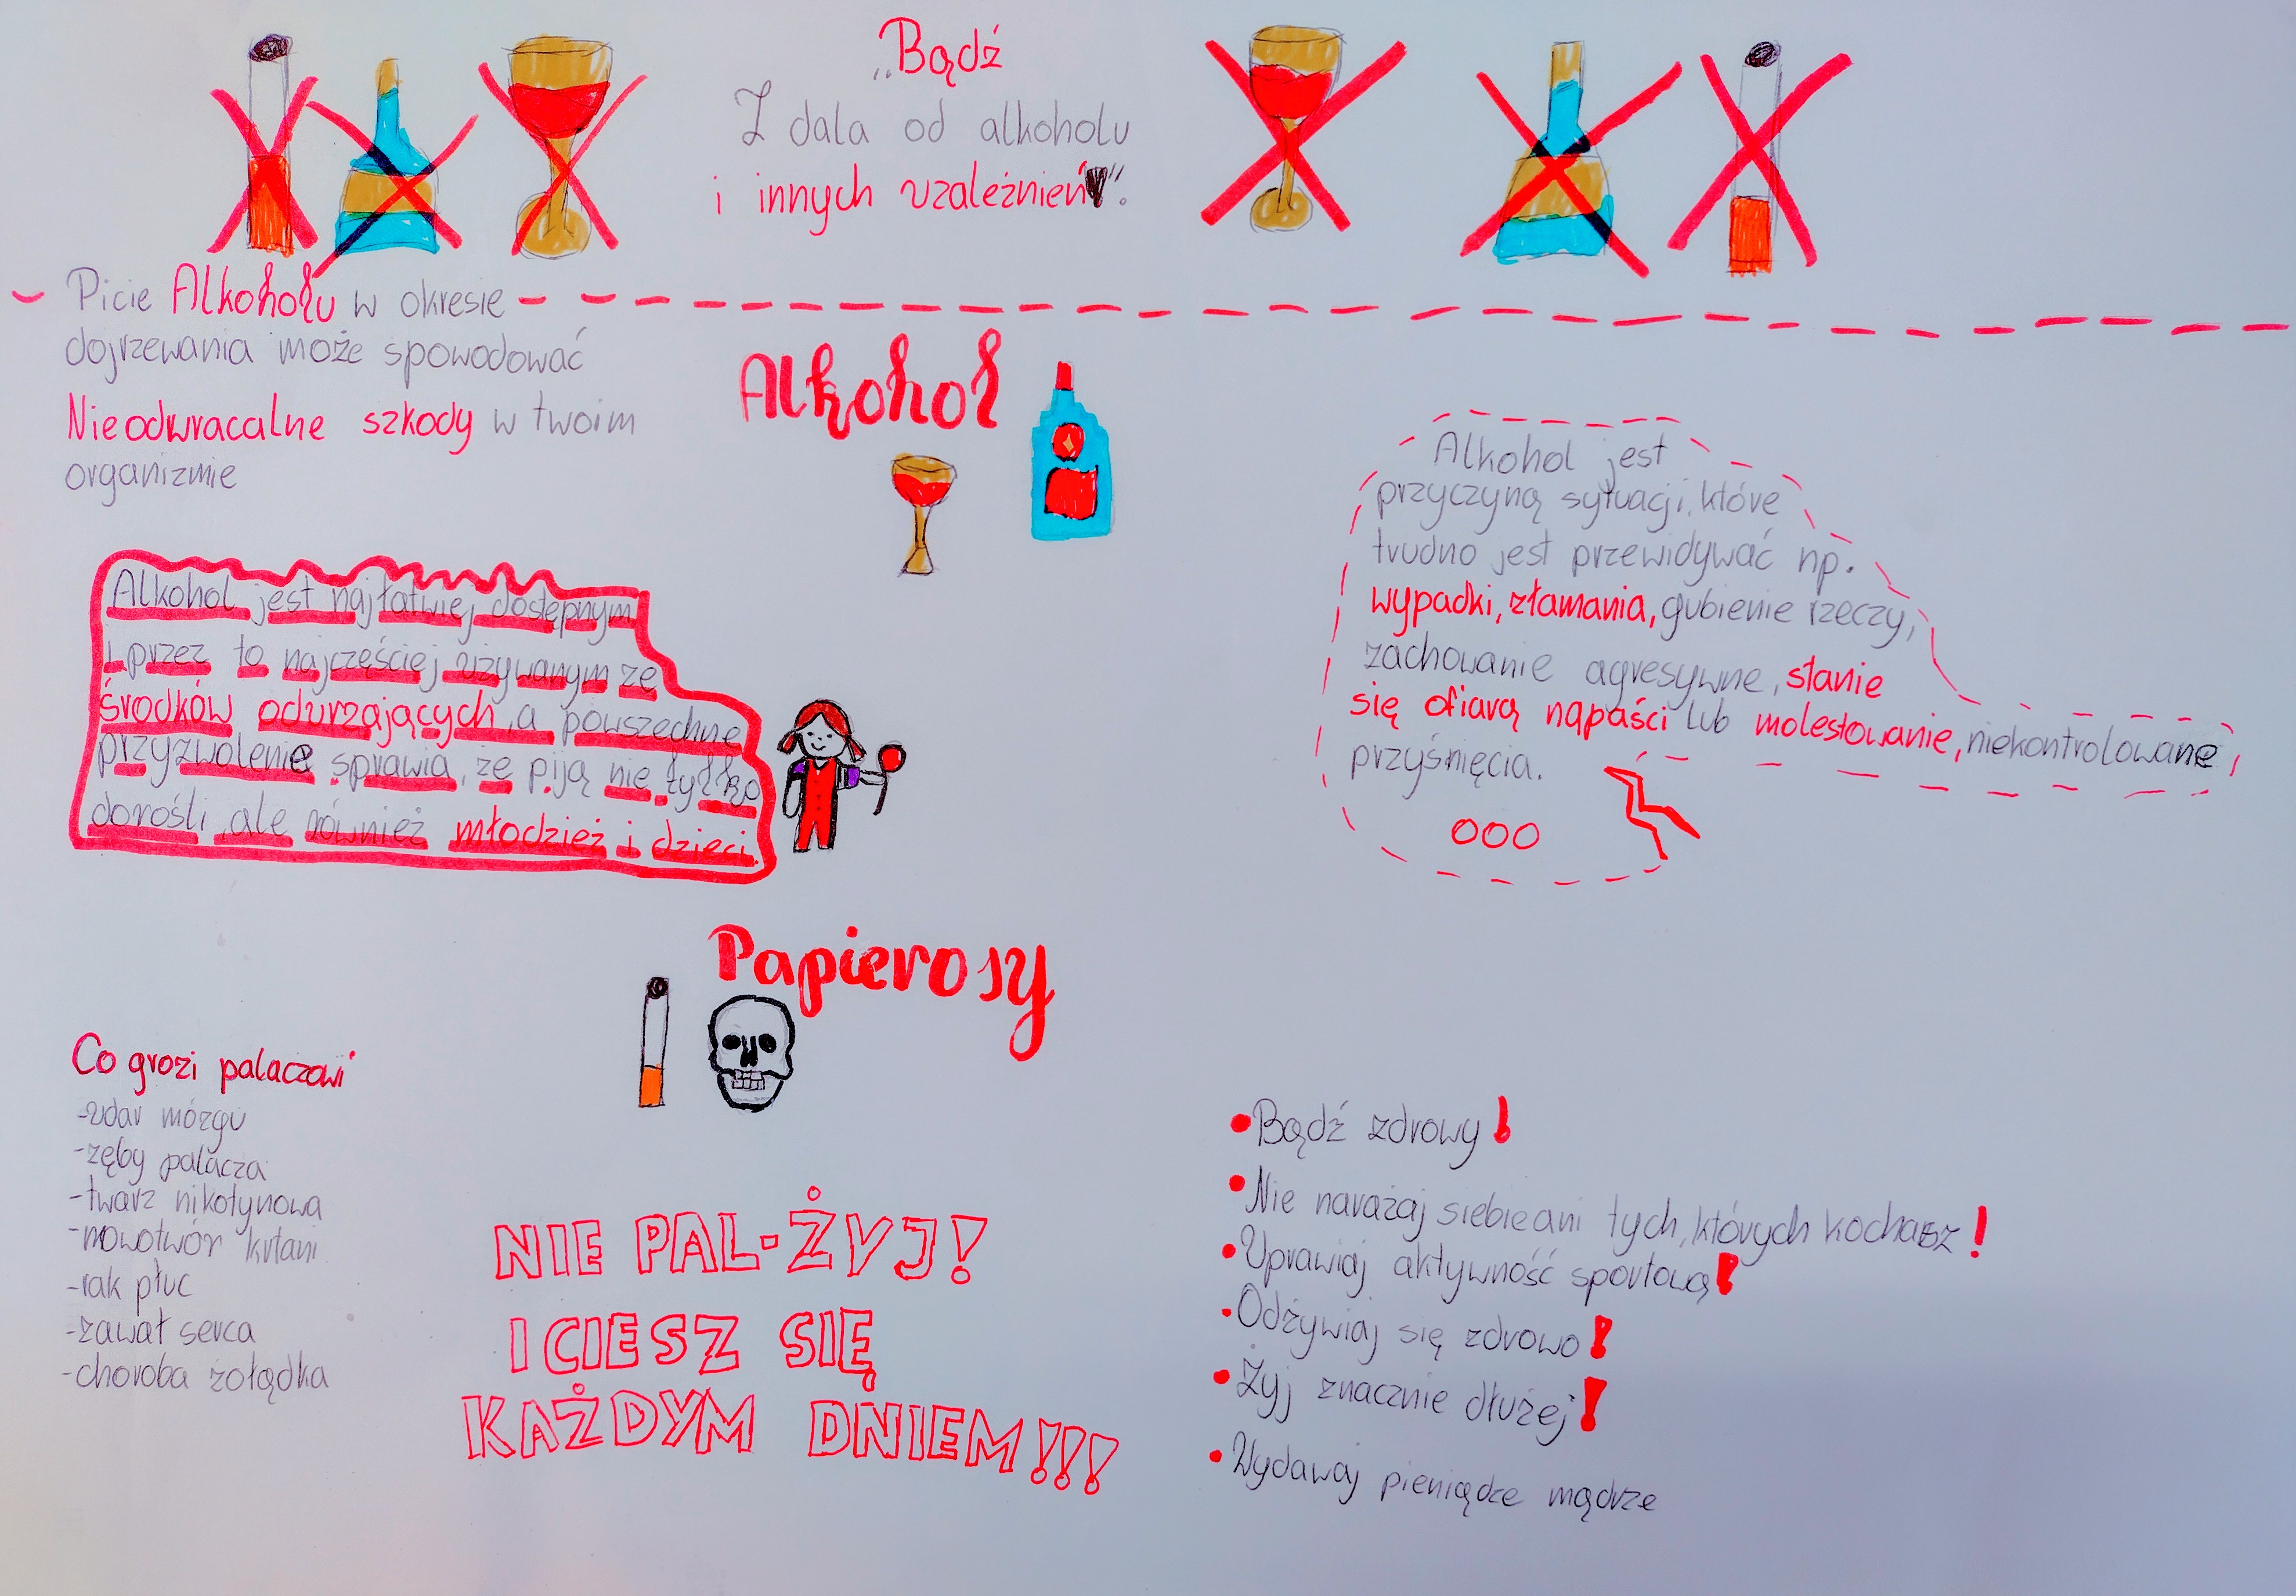 „Bądź
Z dala od alkoholu
i innych uzależnień".
Picie Alkoholu w okresie
dojrzewania może spowodować
Nieodwracalne szkody w twoim
organizmie
Alkohol
Alkohol jest najłatwiej dostępnym
i przez to najczęściej używanym ze
środków odurzających, a powszechne
przyzwolenie sprawia, że piją nie tylko
dorośli, ale również młodzież i dzieci.
Alkohol jest
przyczyną sytuacji, które
trudno jest przewidywać np.
wypadki, złamania, gubienie rzeczy,
zachowanie agresywne, stanie
się ofiarą napaści lub molestowanie, niekontrolowane
przyśnięcia.
Papierosy
Co grozi palaczowi
-udar mózgu
-zęby palacza
-twarz nikotynowa
-nowotwór krtani
-rak płuc
-zawał serca
-choroba żołądka
NIE PAL-ŻYJ!
I CIESZ SIĘ
KAŻDYM DNIEM!!!
•Bądź zdrowy!
•Nie narażaj siebie ani tych, których kochasz!
•Uprawiaj aktywność sportową!
•Odżywiaj się zdrowo!
•Żyj znacznie dłużej!
•Wydawaj pieniądze mądrze